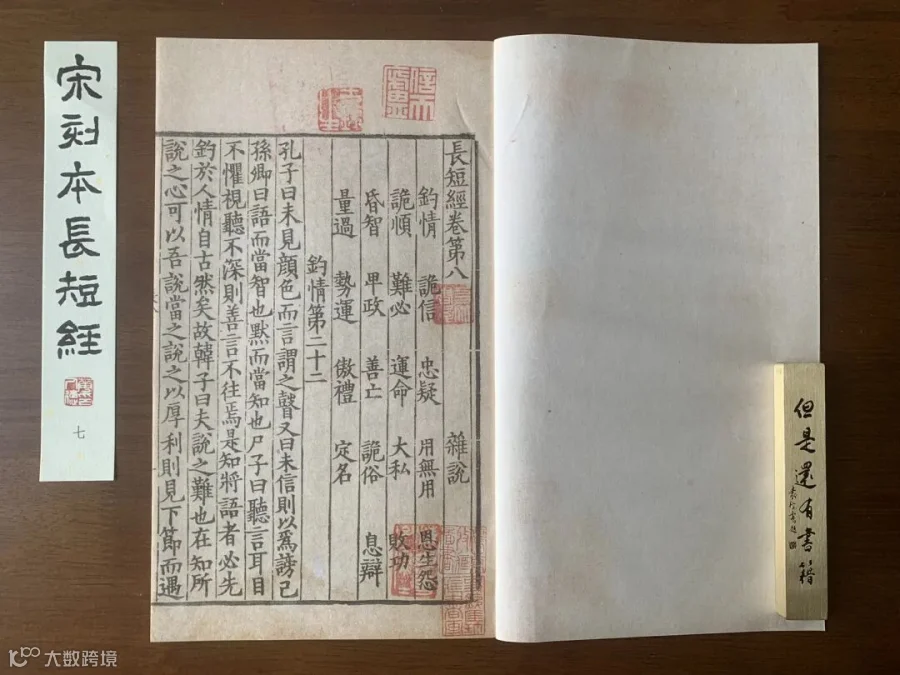 宋刻本長短經
七
長短經卷第八 雜說
釣情 詭信 忠疑 用無用 恩生怨
詭順 難必 運命 大私 敗功
昏智 卑政 善亡 詭俗 息辯
量過 勢運 傲禮 定名
釣情第二十二
孔子曰未見顔色而言謂之瞽又曰未信則以爲謗已
孫卿曰語而當智也默而當知也尸子曰聽言耳目
不懼視聽不深則善言不往焉是知將語者必先
釣於人情自古然矣故韓子曰夫說之難也在知所
說之心可以吾說當之說之以厚利則見下節而遇
但是還有書籍
大数跨境